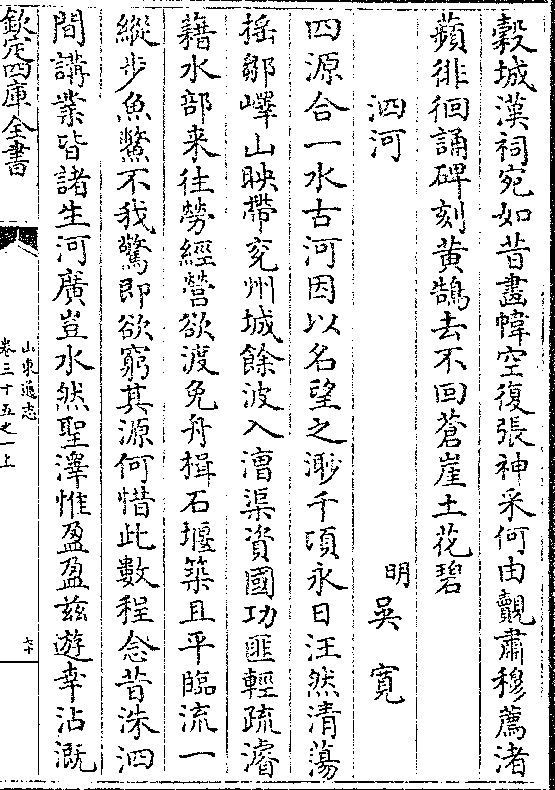 穀城漢祠宛如昔畫幃空復張神采何由覿肅穆薦渚
蘋徘徊誦碑刻黄鵠去不回蒼崖土花碧
泗河
明吳寛
四源合一水古河因以名望之渺千頃永日汪然清蕩
揺鄒嶧山映帶兖州城餘波入漕渠資國功匪輕疏濬
藉水部来往勞經營欲渡免舟楫石堰築且平臨流一
縱步魚鱉不我驚即欲窮其源何惜此數程念昔洙泗
間講業皆諸生河廣豈水然聖澤惟盈盈兹遊幸沾溉
欽定四庫全書
山東通志
卷三十五之一上
六十